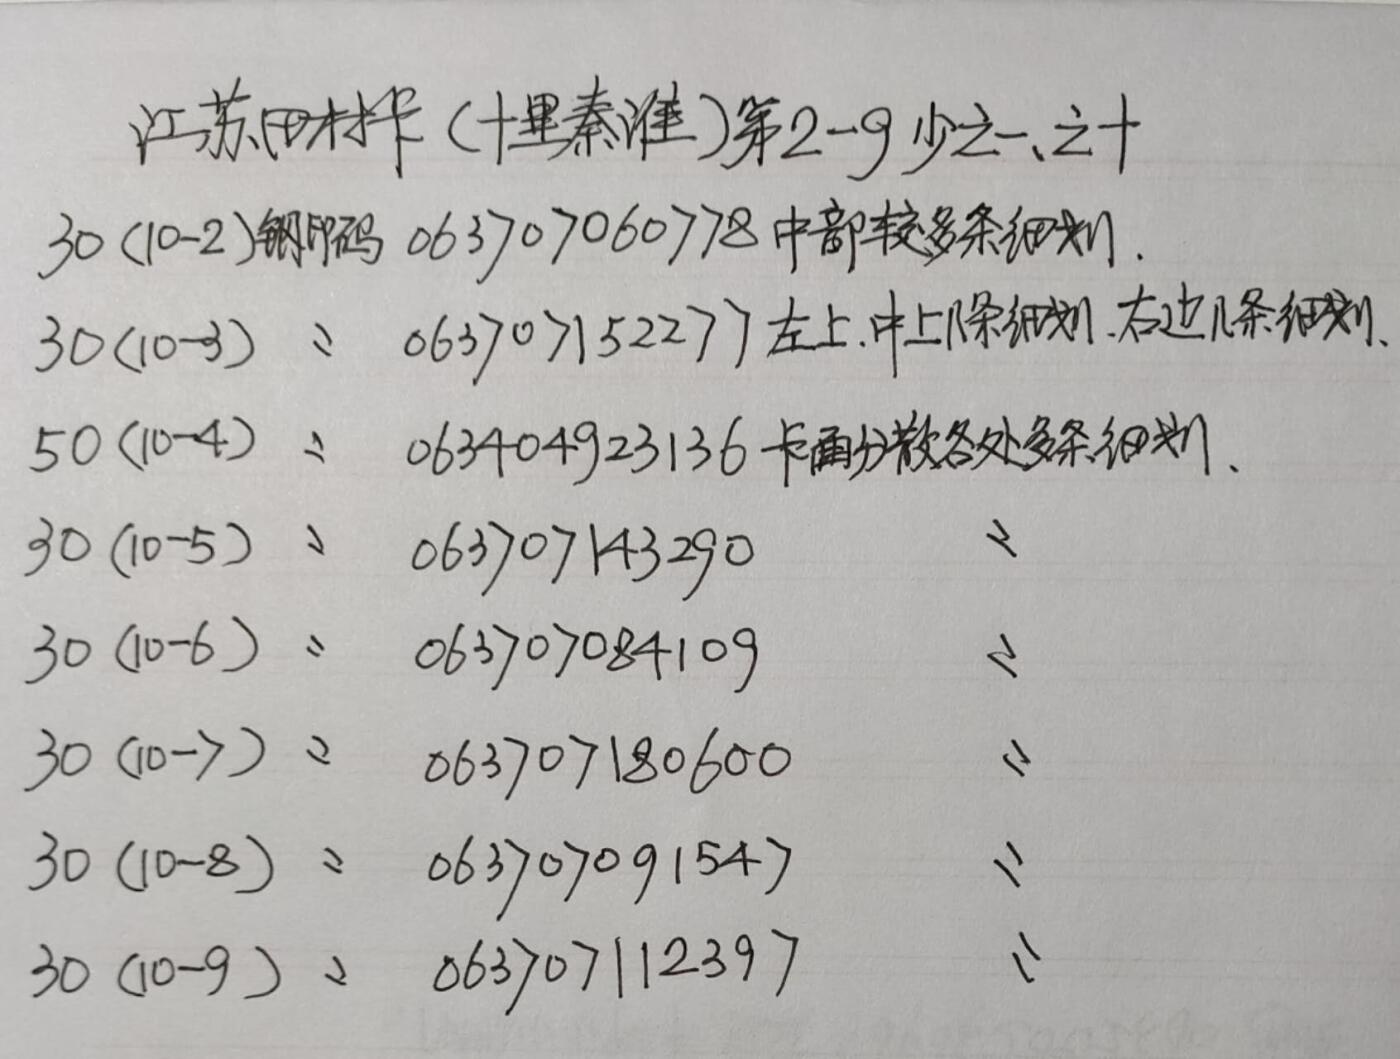 江苏田村卡（十里秦淮）第2-9少之一、之十
30（10-2）钢印码 063707060778 中部较多条细划.
30（10-3） 〃 063707152277 左上、中上几条细划、右边几条细划、
50（10-4） 〃 063404923136 卡面分散各处多条细划、
30（10-5） 〃 063707143290 〃
30（10-6） 〃 063707084109 〃
30（10-7） 〃 063707180600 〃
30（10-8） 〃 063707091547 〃
30（10-9） 〃 063707112397 〃